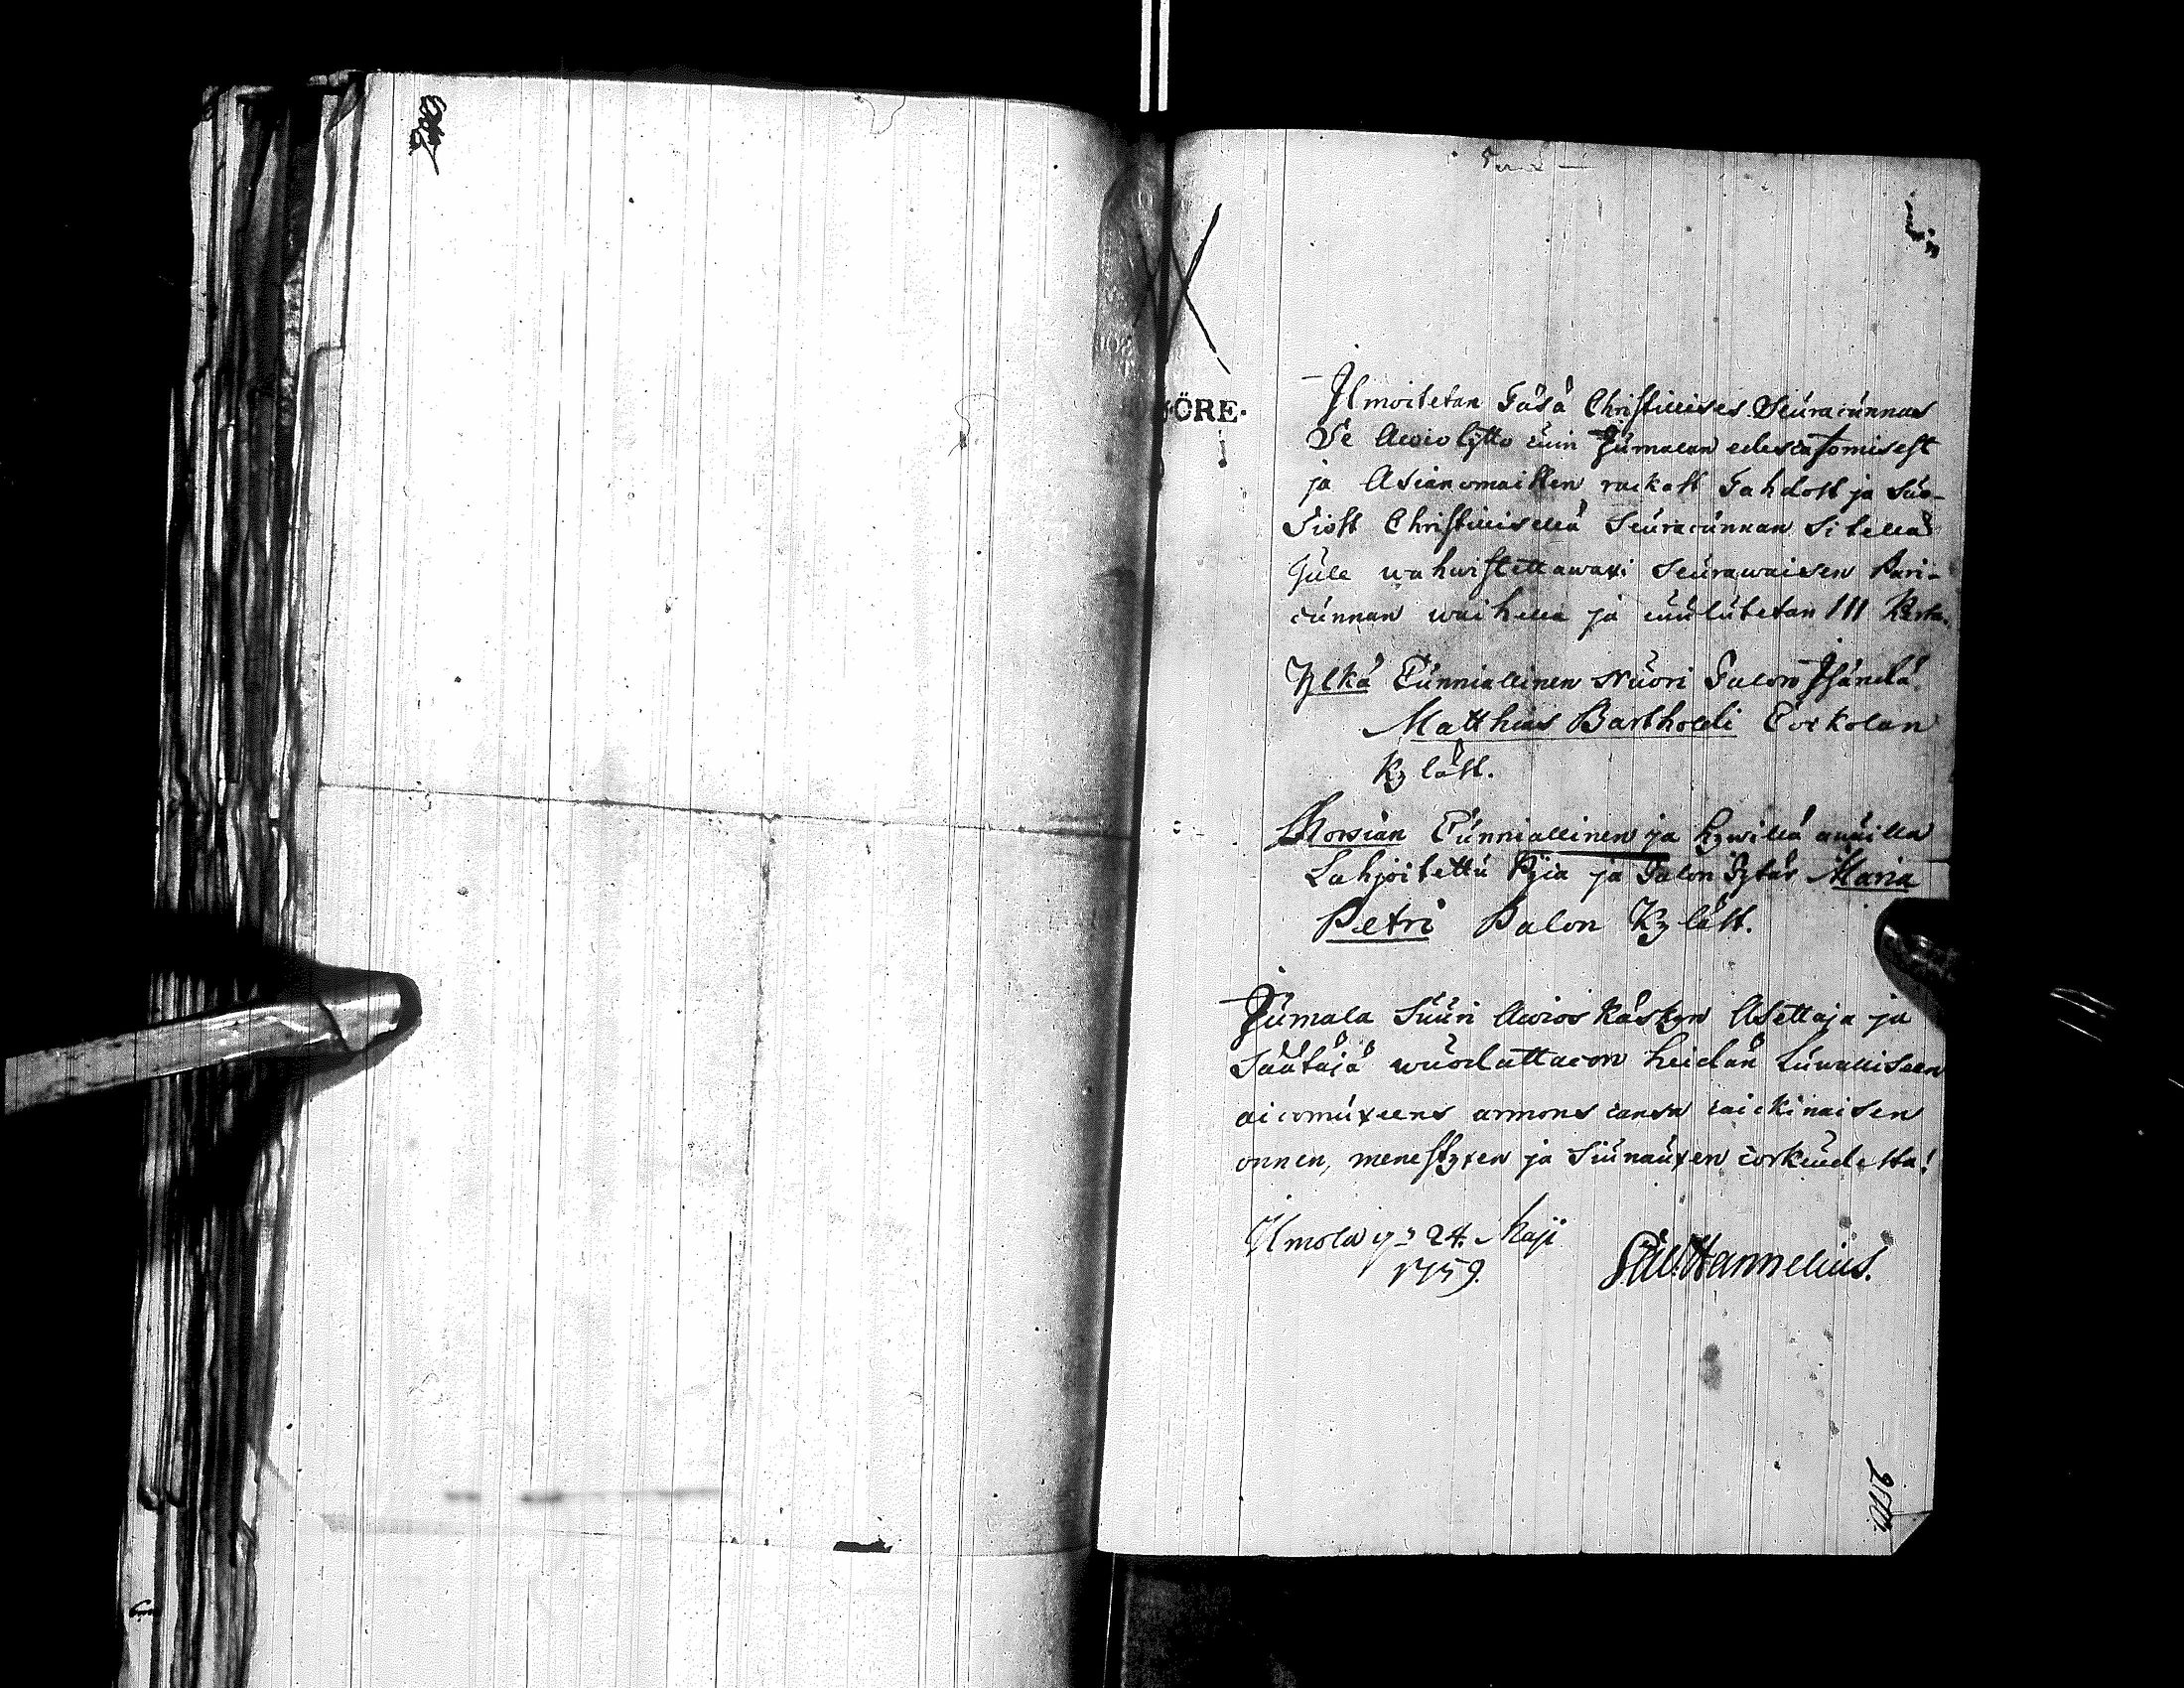 ÖRE.
Ilmoitetan Täsä Christillises Seuracunnas
Se Awiolijtto cuin Jumalan edescatzomisest
ja Asianomaisten raickast Tahdost ja Suo-
siost Christillisellä Seuracunnan sitellä
Tule wahwistettawaxi seurawaisen Pari-
cunnan waihella ja cuulutetan III Kerta.
Yljkä Cunniallinen Nuori Talon Isändä
Matthias Bartholdi Coskolan
Kyläst.
Morsian Cunniallinen ja hywillä awuilla
Lahjoitettu Pijca ja Talon Tytär Maria
Petri Palon Kyläst.
Jumala Suuri Awios Käskyn Asettaja ja
Säätäjä wuodattacon heidän luwalliseen
aicomuxeens armons cansa caickinaisen
onnen, menestyxen ja Siunauxen corkeudesta!
Ilmola 24. Maji
1759.
Hannelius.